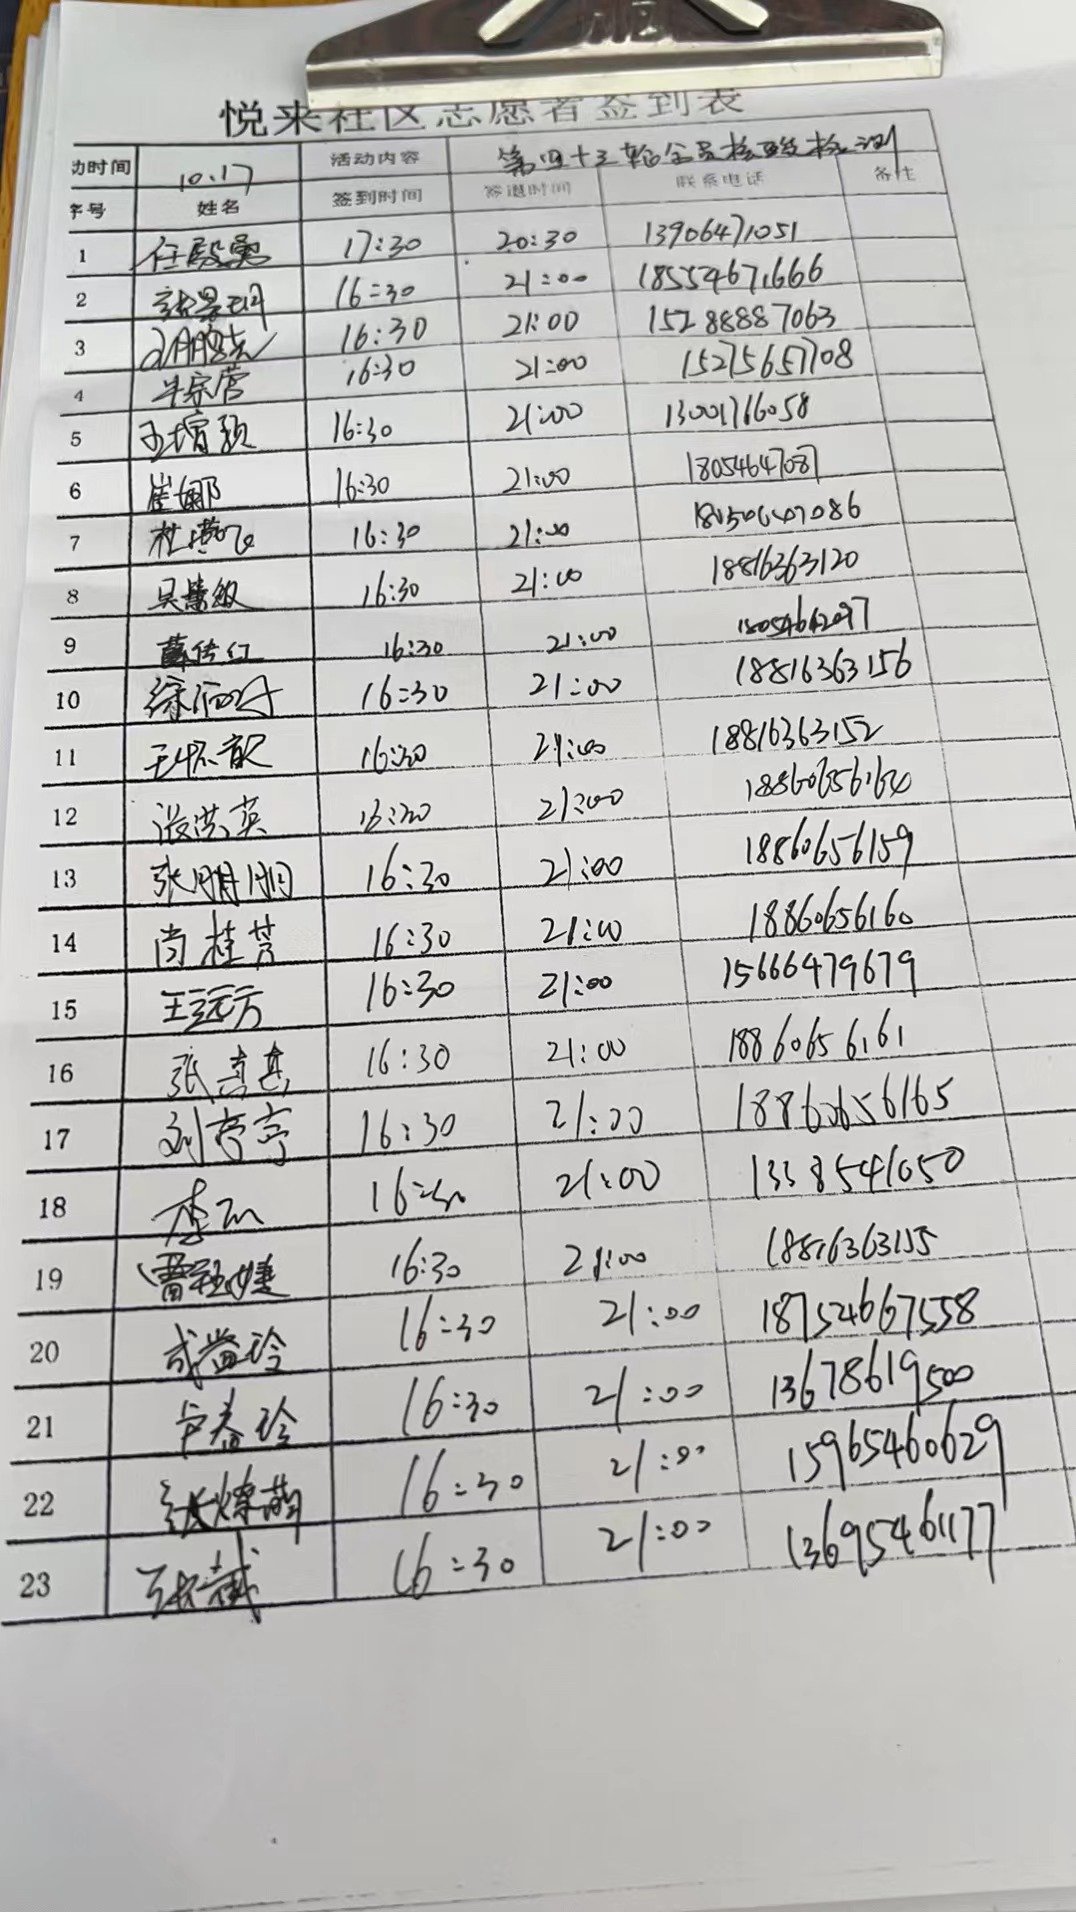 悦来社区志愿者签到表
动时间 10.17 活动内容 第四十三轮全员核酸检测
序号 姓名 签到时间 签退时间 联系电话 备注
1 任殿勇 17:30 20:30 13906471051
2 16:30 21:00 18554671666
3 16:30 21:00 15288887063
4 牛宗营 16:30 21:00 15275657708
5 王增颖 16:30 21:00 13001766058
6 崔娜 16:30 21:00 18054647087
7 杜 16:30 21:00
8 吴慧敏 16:30 21:00 18816363120
9 薛传红 16:30 21:00
10 徐 16:30 21:00 18816363156
11 王怀歆 16:30 21:00 18816363152
12 张洪英 16:30 21:00 18860656164
13 张明明 16:30 21:00 18860656159
14 尚桂芳 16:30 21:00 18860656160
15 王远方 16:30 21:00 15666479679
16 张真真 16:30 21:00 18860656161
17 刘亭亭 16:30 21:00 18860656165
18 李 16:30 21:00 13385461050
19 16:30 21:00 18816363155
20 成益玲 16:30 21:00 18752667558
21 卢春玲 16:30 21:00 13678619500
22 16:30 21:00 15965460629
23 16:30 21:00 13695461177